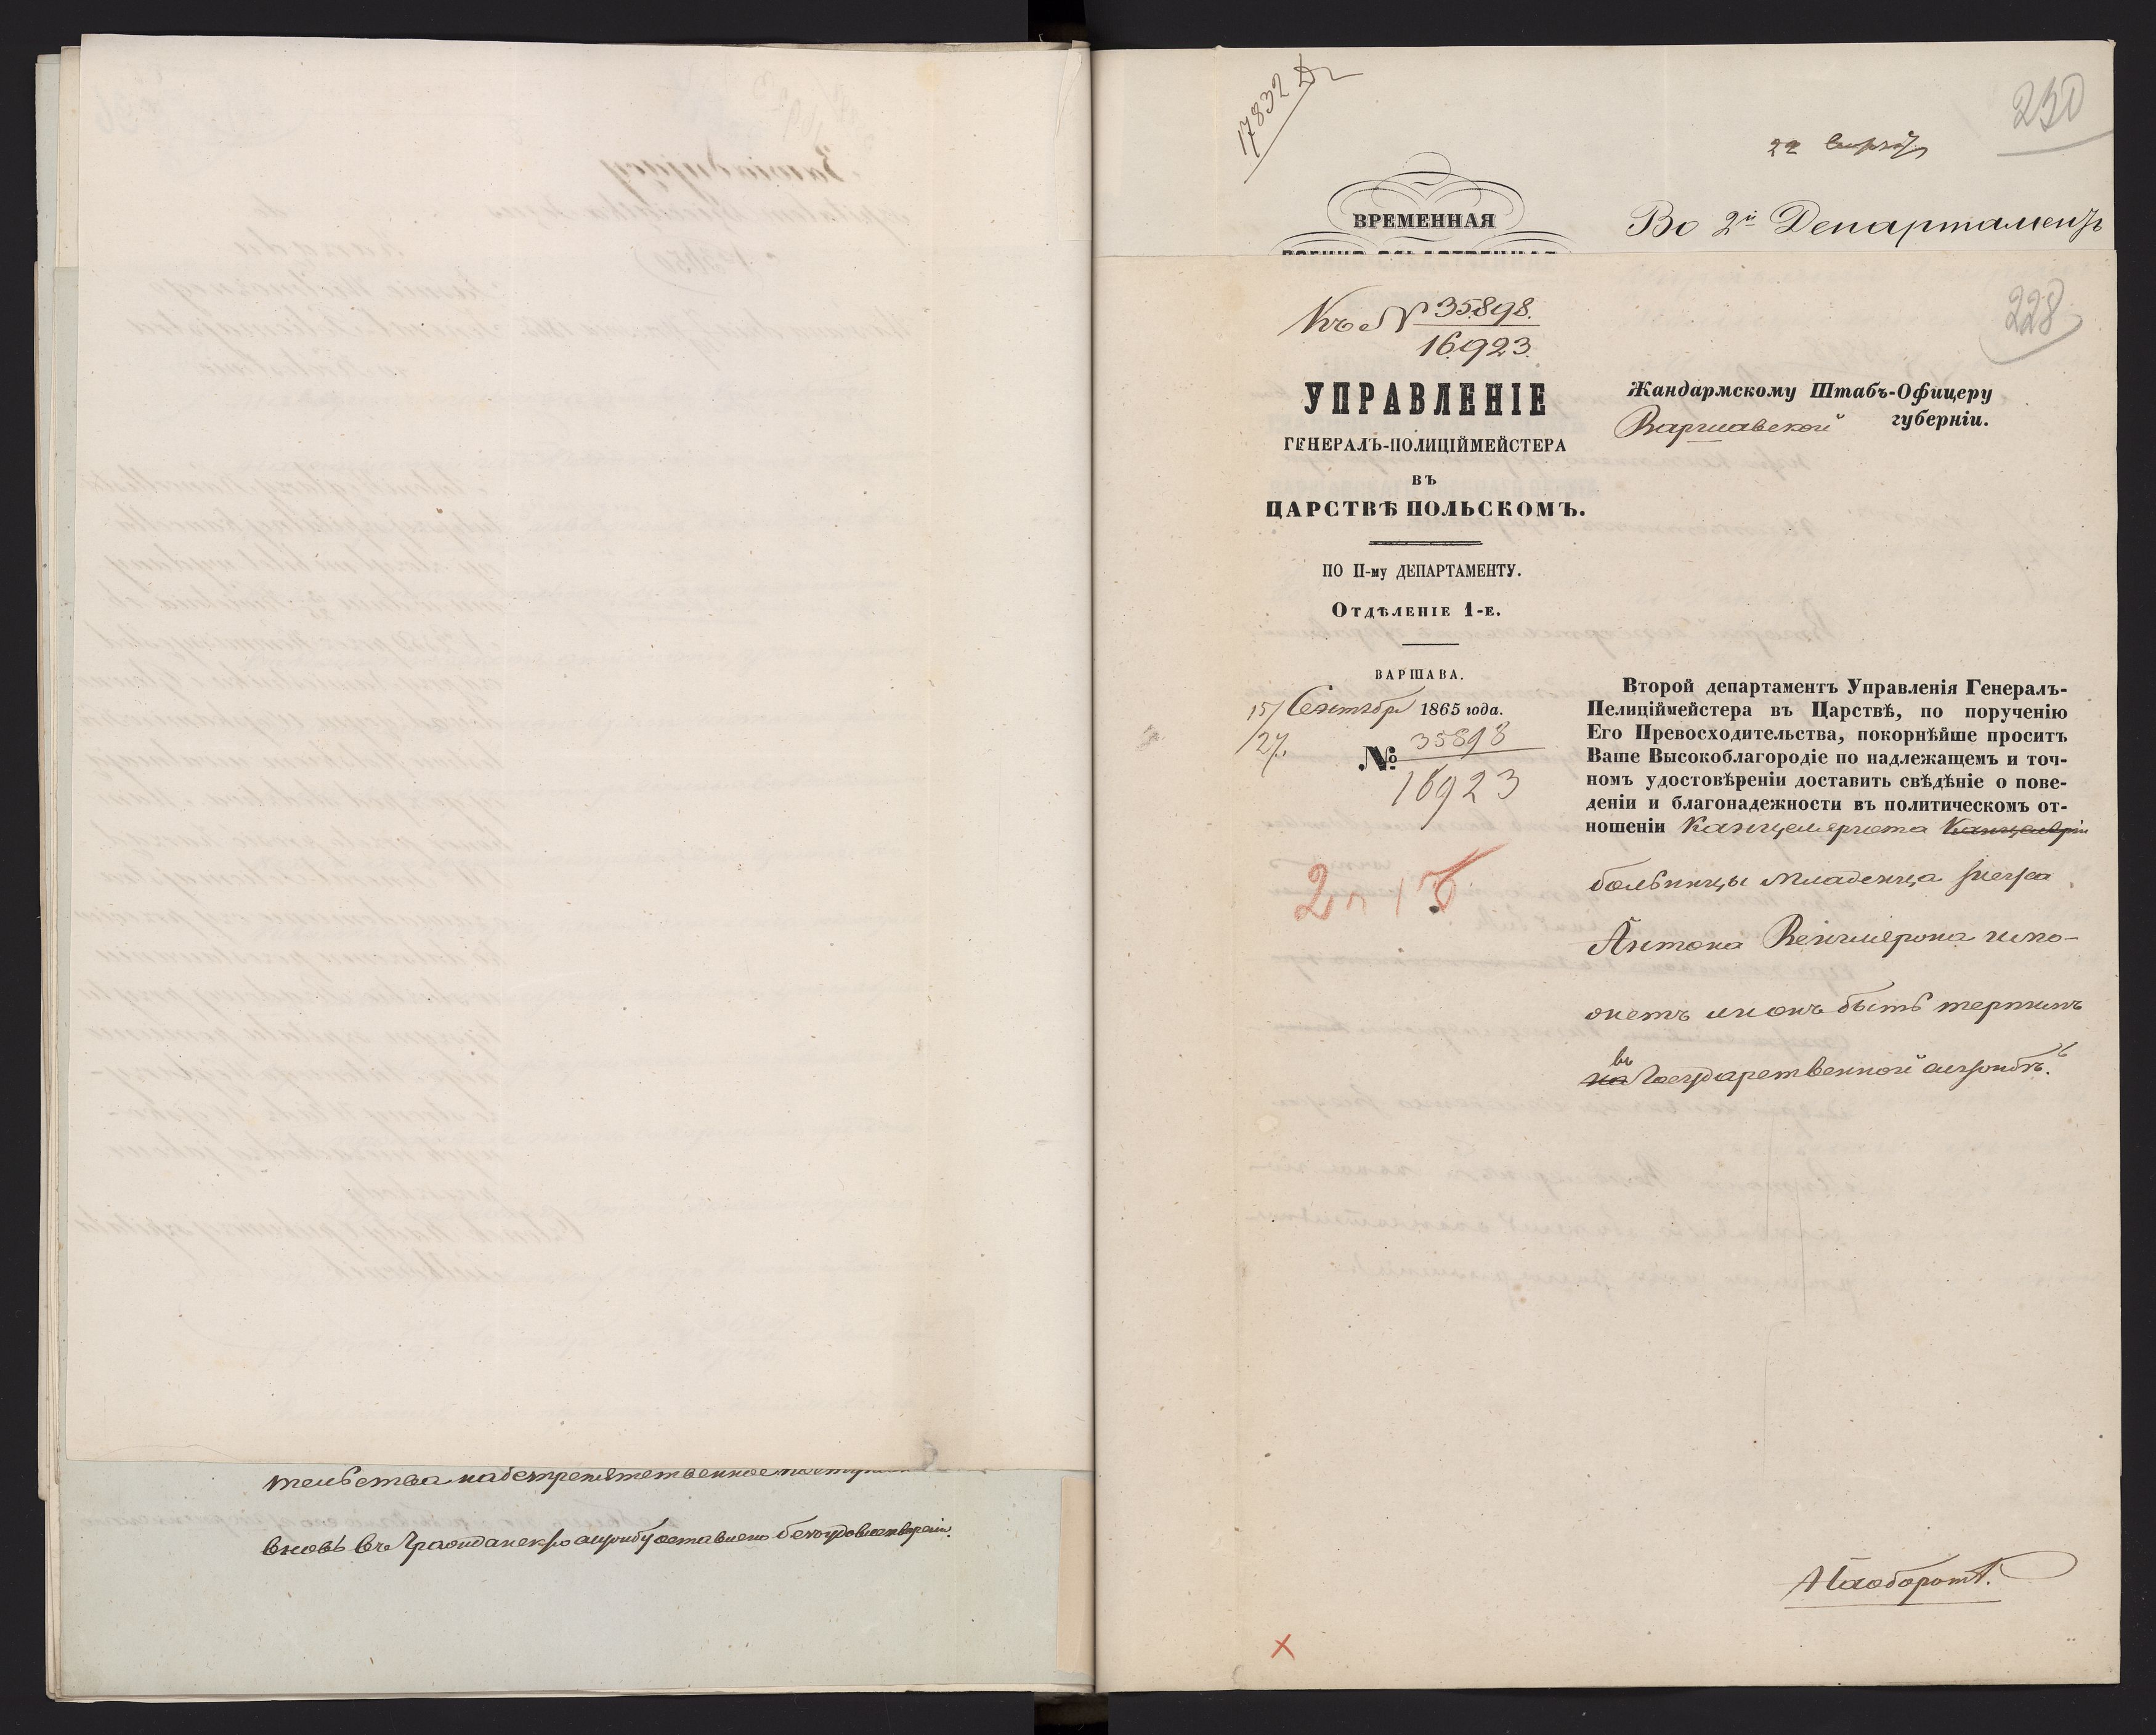 тельства на безпрепятственное поступлен
вновь въ Гражданскую службу оставлено безъ удовлетворенія.
17832
230
22
ВРЕМЕННАЯ
Во 2й Департаментъ
Къ № 35898.
16923.
228
УПРАВЛЕНІЕ
ГЕНЕРАЛЪ-ПОЛИЦІЙМЕЙСТЕРА
ВЪ
ЦАРСТВѢ ПОЛЬСКОМЪ.
ПО II-му ДЕПАРТАМЕНТУ.
Отдѣленіе 1-е.
ВАРШАВА.
15/ Сентября 1865 года.
/27.
№ 35898
16923
Жандармскому Штабъ-Офицеру
Варшавской губерніи.
Второй департаментъ Управленія Генералъ-
Пелиціймейстера въ Царствѣ, по порученію
Его Превосходительства, покорнѣйше проситъ
Ваше Высокоблагородіе по надлежащемъ и точ-
номъ удостовѣреніи доставить свѣдѣніе о пове-
деніи и благонадежности въ политическомъ от-
ношеніи Канцеляриста Канцеляріи
больницы Младенца Іисуса
Антона
онетъ ли онъ быть терпимъ
въ
на Государственной службѣ.
Наоборотѣ.